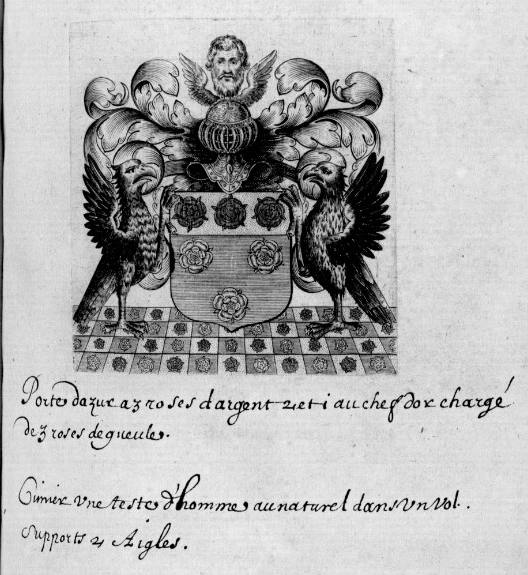 Porte dazur a 3 roses dargent 2 et i au chef dor chargé
de 3 roses de gueule.
Cimier vne teste d'homme au naturel dans vn vol.
supports 2 Aigles.